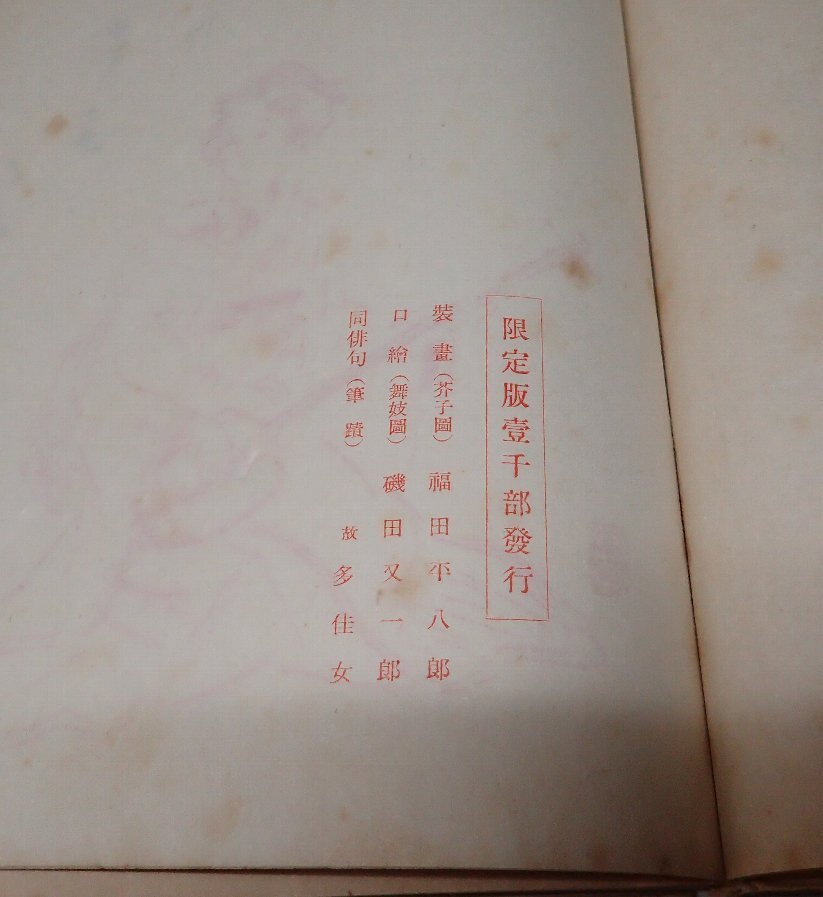 限定版壹千部發行
裝畫(芥子圖) 福田平八郎
口繪(舞妓圖) 磯田又一郎
同俳句(筆蹟) 故多佳女